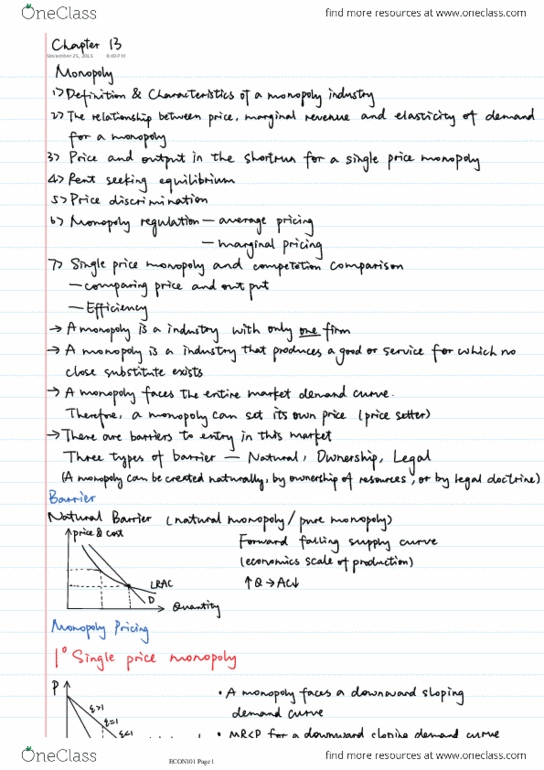 OneClass
find more resources at www.oneclass.com
Chapter 13
November 25, 2015
Monopoly
1) Definition & Characteristics of a monopoly industry
2) The relationship between price, marginal revenue and elasticity of demand
for a monopoly
3) Price and output in the shortrun for a single price monopoly
4) Rent seeking equilibrium
5) Price discrimination
6) Monopoly regulation — average pricing
— marginal pricing
7) Single price monopoly and competetion comparison
— comparing price and out put
— Efficiency
→ A monopoly is a industry with only one firm
→ A monopoly is a industry that produces a good or service for which no
close substitute exists
→ A monopoly faces the entire market demand curve.
Therefore, a monopoly can set its own price (price setter)
→ There are barriers to entry in this market
Three types of barrier — Natural, Ownership, Legal
(A monopoly can be created naturally, by ownership of resources, or by legal doctrine)
Barrier
Natural Barrier (natural monopoly / pure monopoly)
price & cost
Forward falling supply curve
(economics scale of production)
↑Q → AC↓
LRAC
D
Quantity
Monopoly Pricing
1° Single price monopoly
P
• A monopoly faces a downward sloping
demand curve
ε>1
ε=1
ε<1
• MR<P for a downward sloping demand curve
OneClass
ECON101 Page 1
find more resources at www.oneclass.com